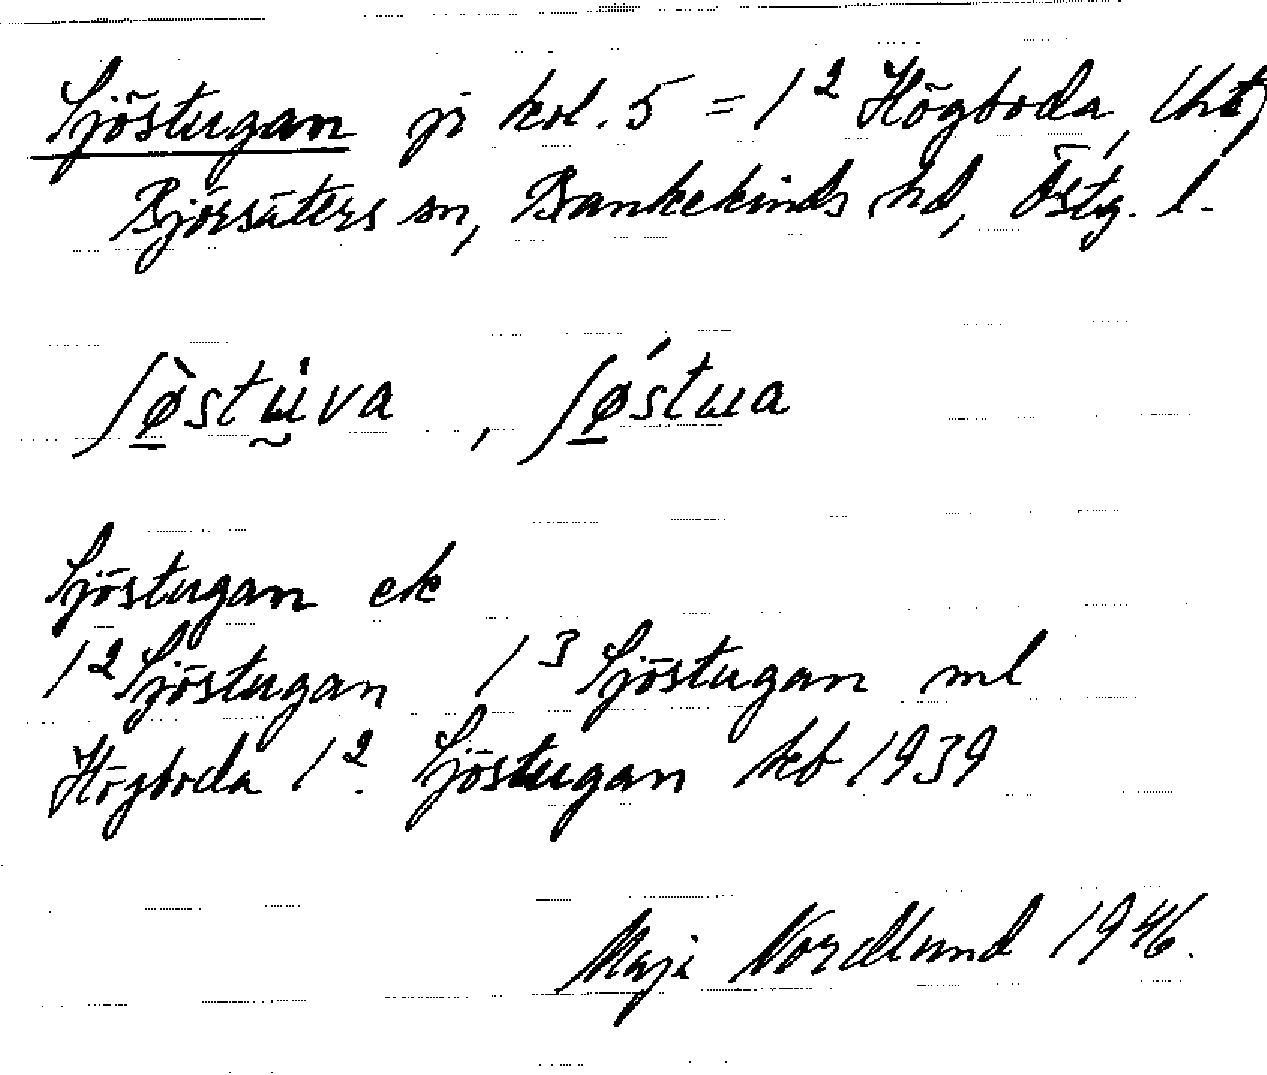 Sjöstugan på kol. 5 = 1² Högboda, lht,
Björsäters sn, Bankekinds hd, Östg. l.
ʃø̀stu̇va, ʃǿstua
Sjöstugan ek
1² Sjöstugan 1³ Sjöstugan ml
Högboda 1². Sjöstugan kb 1939
Maji Nordlund 1946.